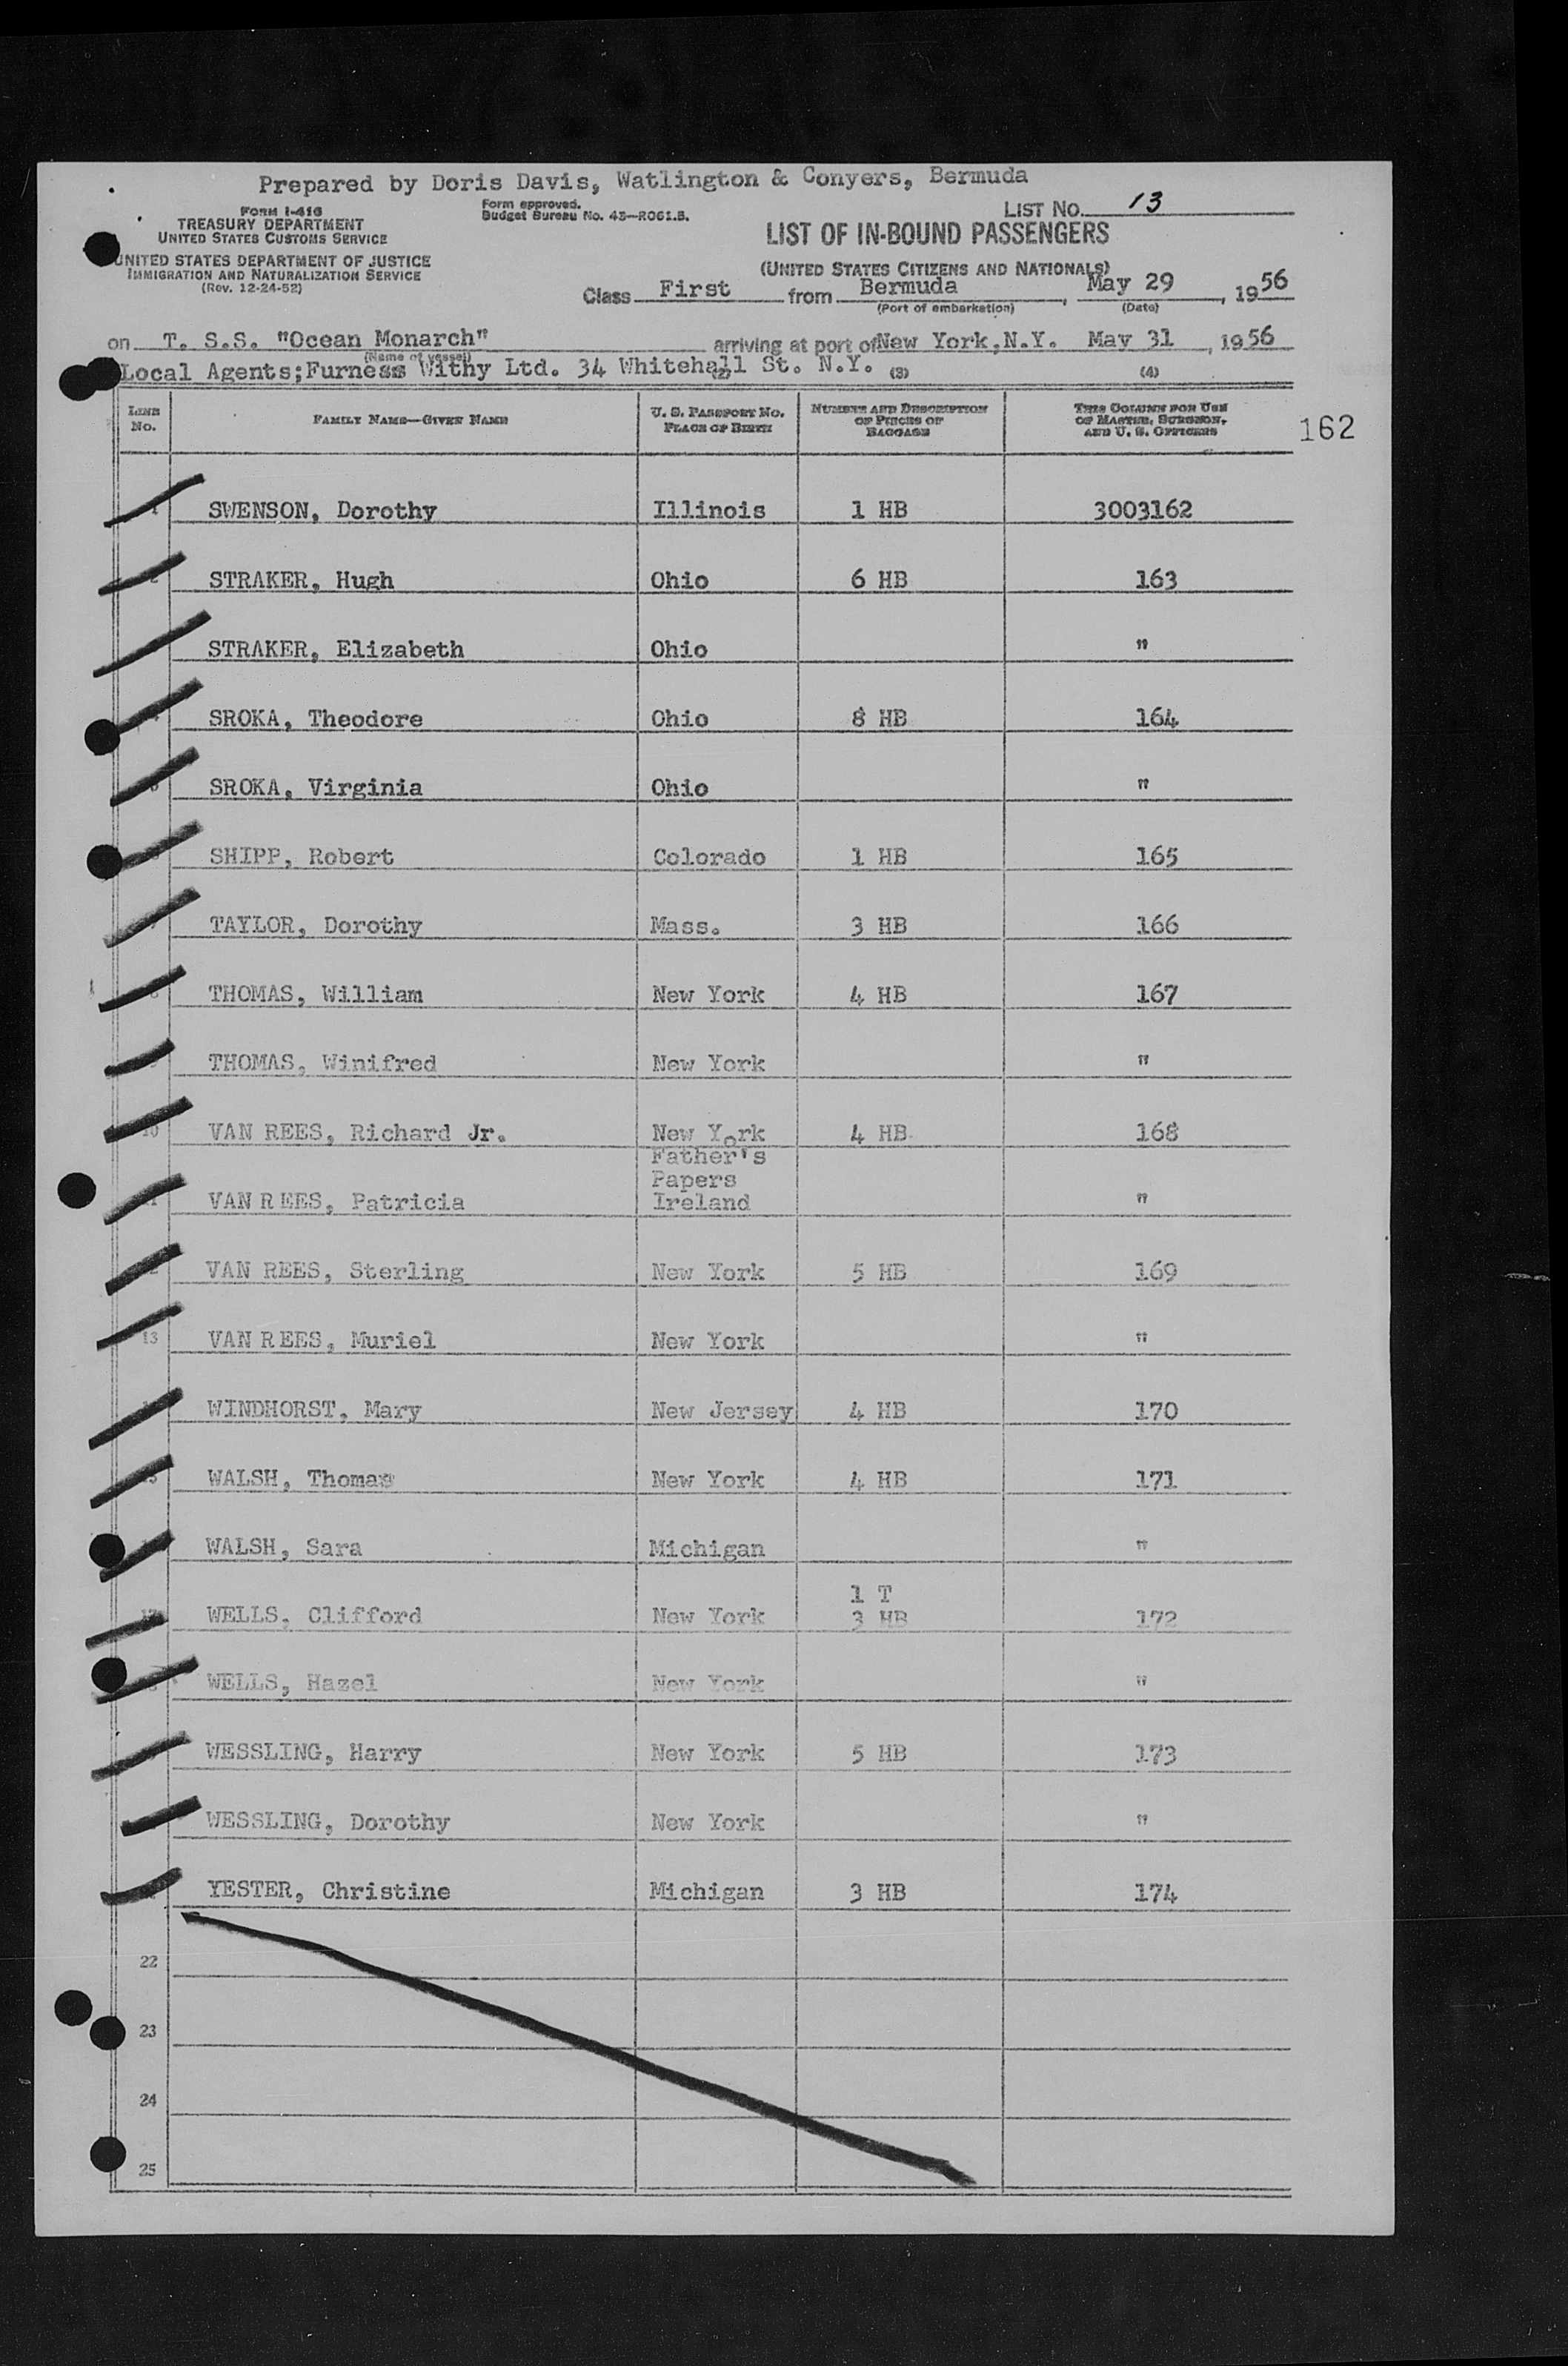 Prepared by Doris Davis, Watlington & Conyers, Bermuda
FORM I-416
TREASURY DEPARTMENT
UNITED STATES CUSTOMS SERVICE
UNITED STATES DEPARTMENT OF JUSTICE
IMMIGRATION AND NATURALIZATION SERVICE
(Rev. 12-24-52)
Form approved.
Budget Bureau No. 43—R061.5.
LIST No. 13
LIST OF IN-BOUND PASSENGERS
(UNITED STATES CITIZENS AND NATIONALS)
Class First from Bermuda, May 29, 1956
(Port of embarkation) (Date)
on T. S.S. "Ocean Monarch" arriving at port of New York, N.Y. May 31, 1956
(Name of vessel)
Local Agents; Furness Withy Ltd. 34 Whitehall St. N.Y.
(2) (3) (4)
LINE No. FAMILY NAME—GIVEN NAME U. S. PASSPORT NO. PLACE OF BIRTH NUMBER AND DESCRIPTION OF PIECES OF BAGGAGE THIS COLUMN FOR USE OF MASTER, SURGEON, AND U. S. OFFICERS
162
1 SWENSON, Dorothy Illinois 1 HB 3003162
2 STRAKER, Hugh Ohio 6 HB 163
STRAKER, Elizabeth Ohio "
SROKA, Theodore Ohio 8 HB 164
5 SROKA, Virginia Ohio "
SHIPP, Robert Colorado 1 HB 165
7 TAYLOR, Dorothy Mass. 3 HB 166
8 THOMAS, William New York 4 HB 167
9 THOMAS, Winifred New York "
10 VAN REES, Richard Jr. New York 4 HB 168
Father's
Papers
11 VAN REES, Patricia Ireland "
12 VAN REES, Sterling New York 5 HB 169
13 VAN REES, Muriel New York "
WINDHORST, Mary New Jersey 4 HB 170
15 WALSH, Thomas New York 4 HB 171
WALSH, Sara Michigan "
1 T
17 WELLS, Clifford New York 3 HB 172
WELLS, Hazel New York "
WESSLING, Harry New York 5 HB 173
WESSLING, Dorothy New York "
YESTER, Christine Michigan 3 HB 174
22
23
24
25